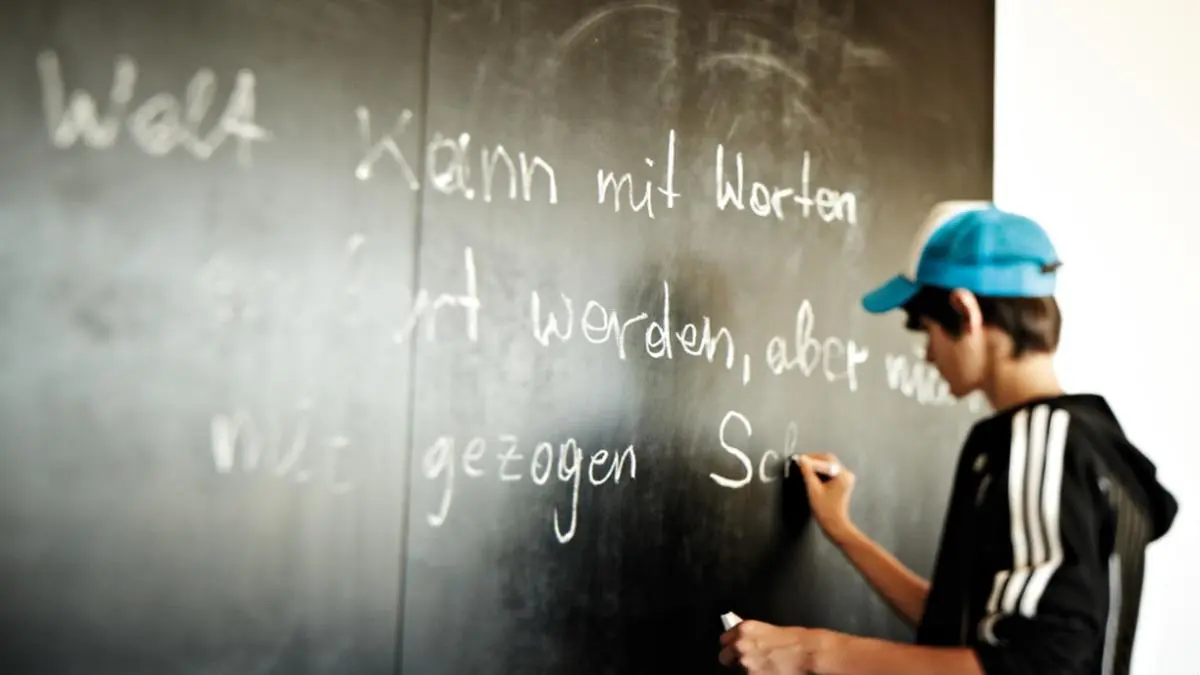 Welt Kann mit Worten
werden, aber
gezogen Sch